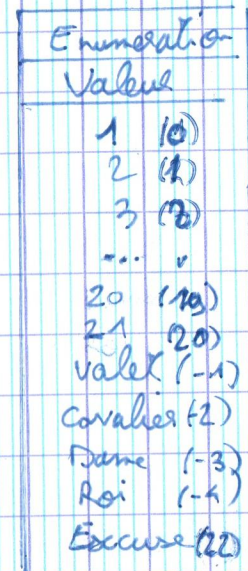 Enumeration
Valeur
1 (0)
2 (1)
3 (2)
... "
20 (19)
21 (20)
Valet (-1)
Cavalier (-2)
Dame (-3)
Roi (-4)
Excuse (22)